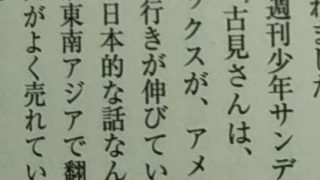 れました
週刊少年サンデ
『古見さんは、
ックスが、アメ
行きが伸びてい
日本的な話なん
東南アジアで翻
がよく売れてい